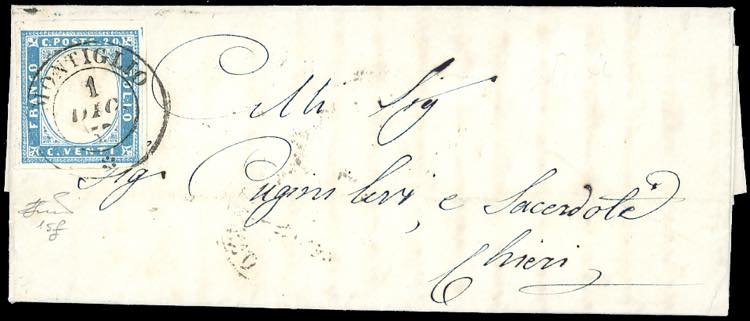 C. POSTE 20
FRANCO BOLLO
C. VENTI
MONTIGLIO
1
DIC
57
Alli Sig
Sig Pugini Levi, e Sacerdote
Chieri
15f